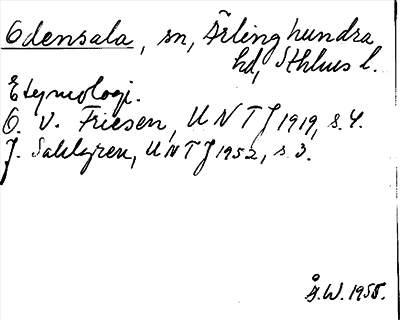 Odensala, sn, Ärlinghundra
hd, Sthlms l.
Etymologi.
O. v. Friesen, UNT 1919, s. 4.
J. Sahlgren, UNT 1952, s. 3.
Å.W. 1955.